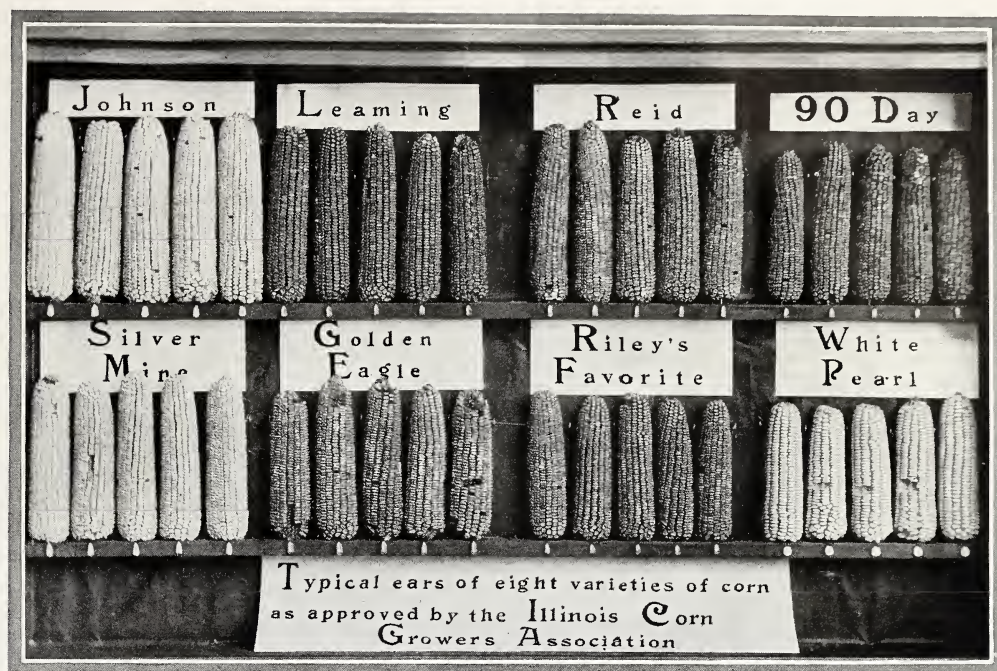 Johnson
Leaming
Reid
90 Day
Silver
Mine
Golden
Eagle
Riley's
Favorite
White
Pearl
Typical ears of eight varieties of corn
as approved by the Illinois Corn
Growers Association